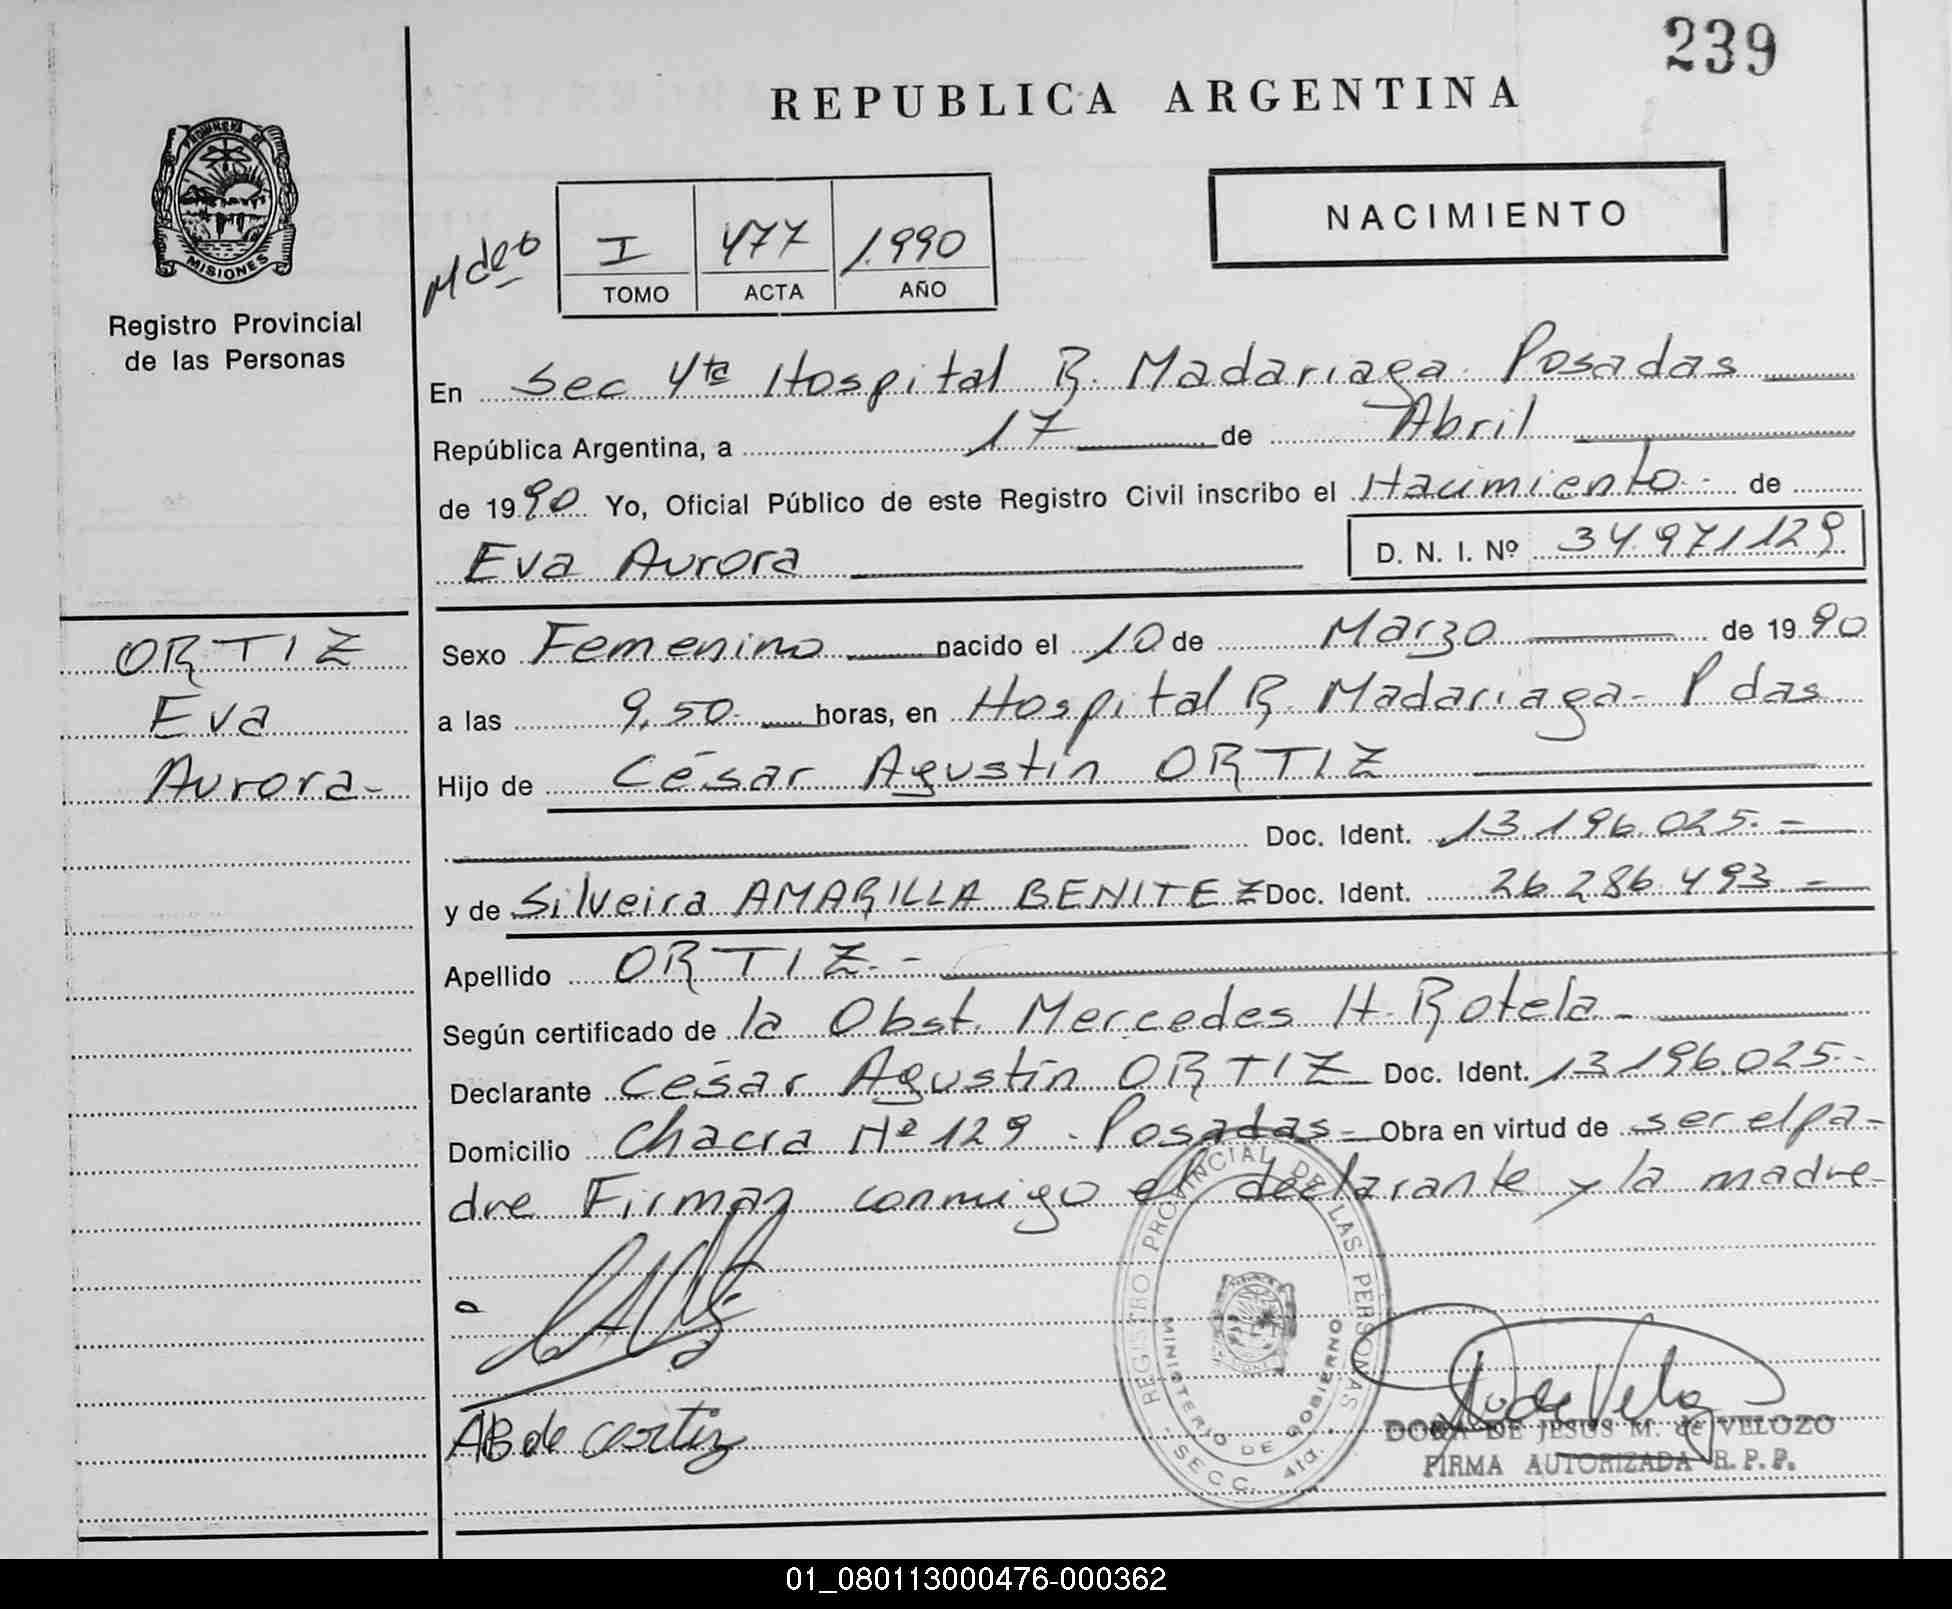 239
REPUBLICA ARGENTINA
PROVINCIA DE
MISIONES
Registro Provincial
de las Personas
NACIMIENTO
I 477 1.990
TOMO ACTA AÑO
En Sec 4ta Hospital R. Madariaga. Posadas
República Argentina, a 17 de Abril
de 1990 Yo, Oficial Público de este Registro Civil inscribo el Nacimiento.- de
Eva Aurora D. N. I. Nº 34.971.129
ORTIZ
Eva
Aurora-
Sexo Femenino nacido el 10 de Marzo de 1990
a las 9,50. horas, en Hospital R. Madariaga- Pdas
Hijo de César Agustín ORTIZ
Doc. Ident. 13.196.025.-
y de Silveira AMARILLA BENITEZ Doc. Ident. 26.286.493 -
Apellido ORTIZ.-
Según certificado de la Obst. Mercedes H. Rotela -
Declarante César Agustín ORTIZ Doc. Ident. 13.196.025.-
Domicilio Chacra Nº 129 - Posadas- Obra en virtud de ser el pa-
dre Firman conmigo el declarante y la madre-
REGISTRO PROVINCIAL DE LAS PERSONAS
MINISTERIO DE GOBIERNO
- SECC. 4ta. -
AB de ortiz
DORA DE JESUS M. de VELOZO
FIRMA AUTORIZADA R. P. P.
01_080113000476-000362